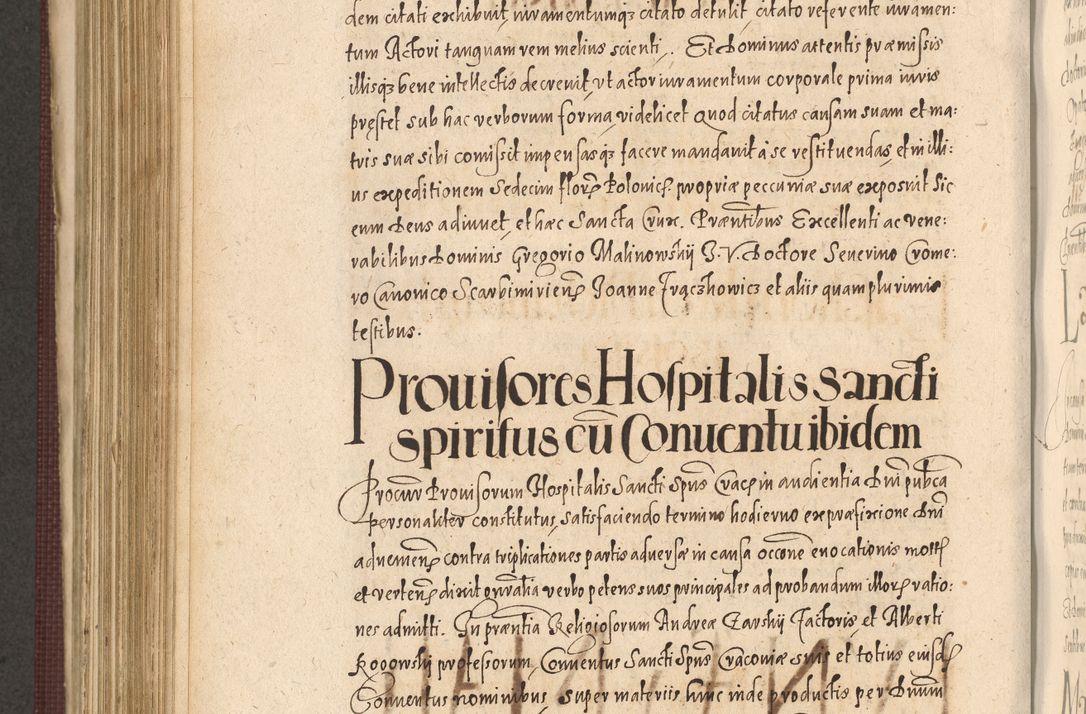 dem citati exhibuit, iuramentumq3 citato detulit, citato referente iuramen:
tum Actori tanquam rem melius scienti. Et Dominus attentis præmissis
illisq3 bene intellectis decrevit, vt actor iuramentum corporale prima iuris
pręstet sub hac verborum forma, videlicet Quod citatus causam suam et ma:
tris suæ sibi comisit impensasq3 facere mandavit à se restituendas, et in illi:
us expeditionem Sedecim florę Polonicę propriæ peccuniæ suæ exposuit Sic
eum Deus adiuuet, et hæc Sancta Crux. Præntibus Excellenti ac vene:
rabilibus Dominis Gregorio Malinowskÿ I. V. Doctore Seuerino Crome:
ro Canonico Scarbimirienę Joanne Frączkowicz et aliis quamplurimis
testibus.
Prouisores Hospitalis Sancti
spiritus cũ Conuentu ibidem
Procurr Prouisorum Hospitalis Sancti Spũs Cracę in audientia Dni pubca
personaliter constitutus, satisfaciendo termino hodierno ex præfixione Dni
aduenienę contra triplicationes partis aduersæ in causa occone euocationis motę
et vertenę dixit gnralia verbo petens suos principales ad probandum illorę ratio:
nes admitti. In præntia Religiosorum Andreæ Carskÿ Factoris, et Alberti
Rogowskÿ professorum, Conuentus Sancti Spũs Cracouiæ suis et totius eiusdę
Conuentus nominibus, super materiis hinc inde productis per Dnum